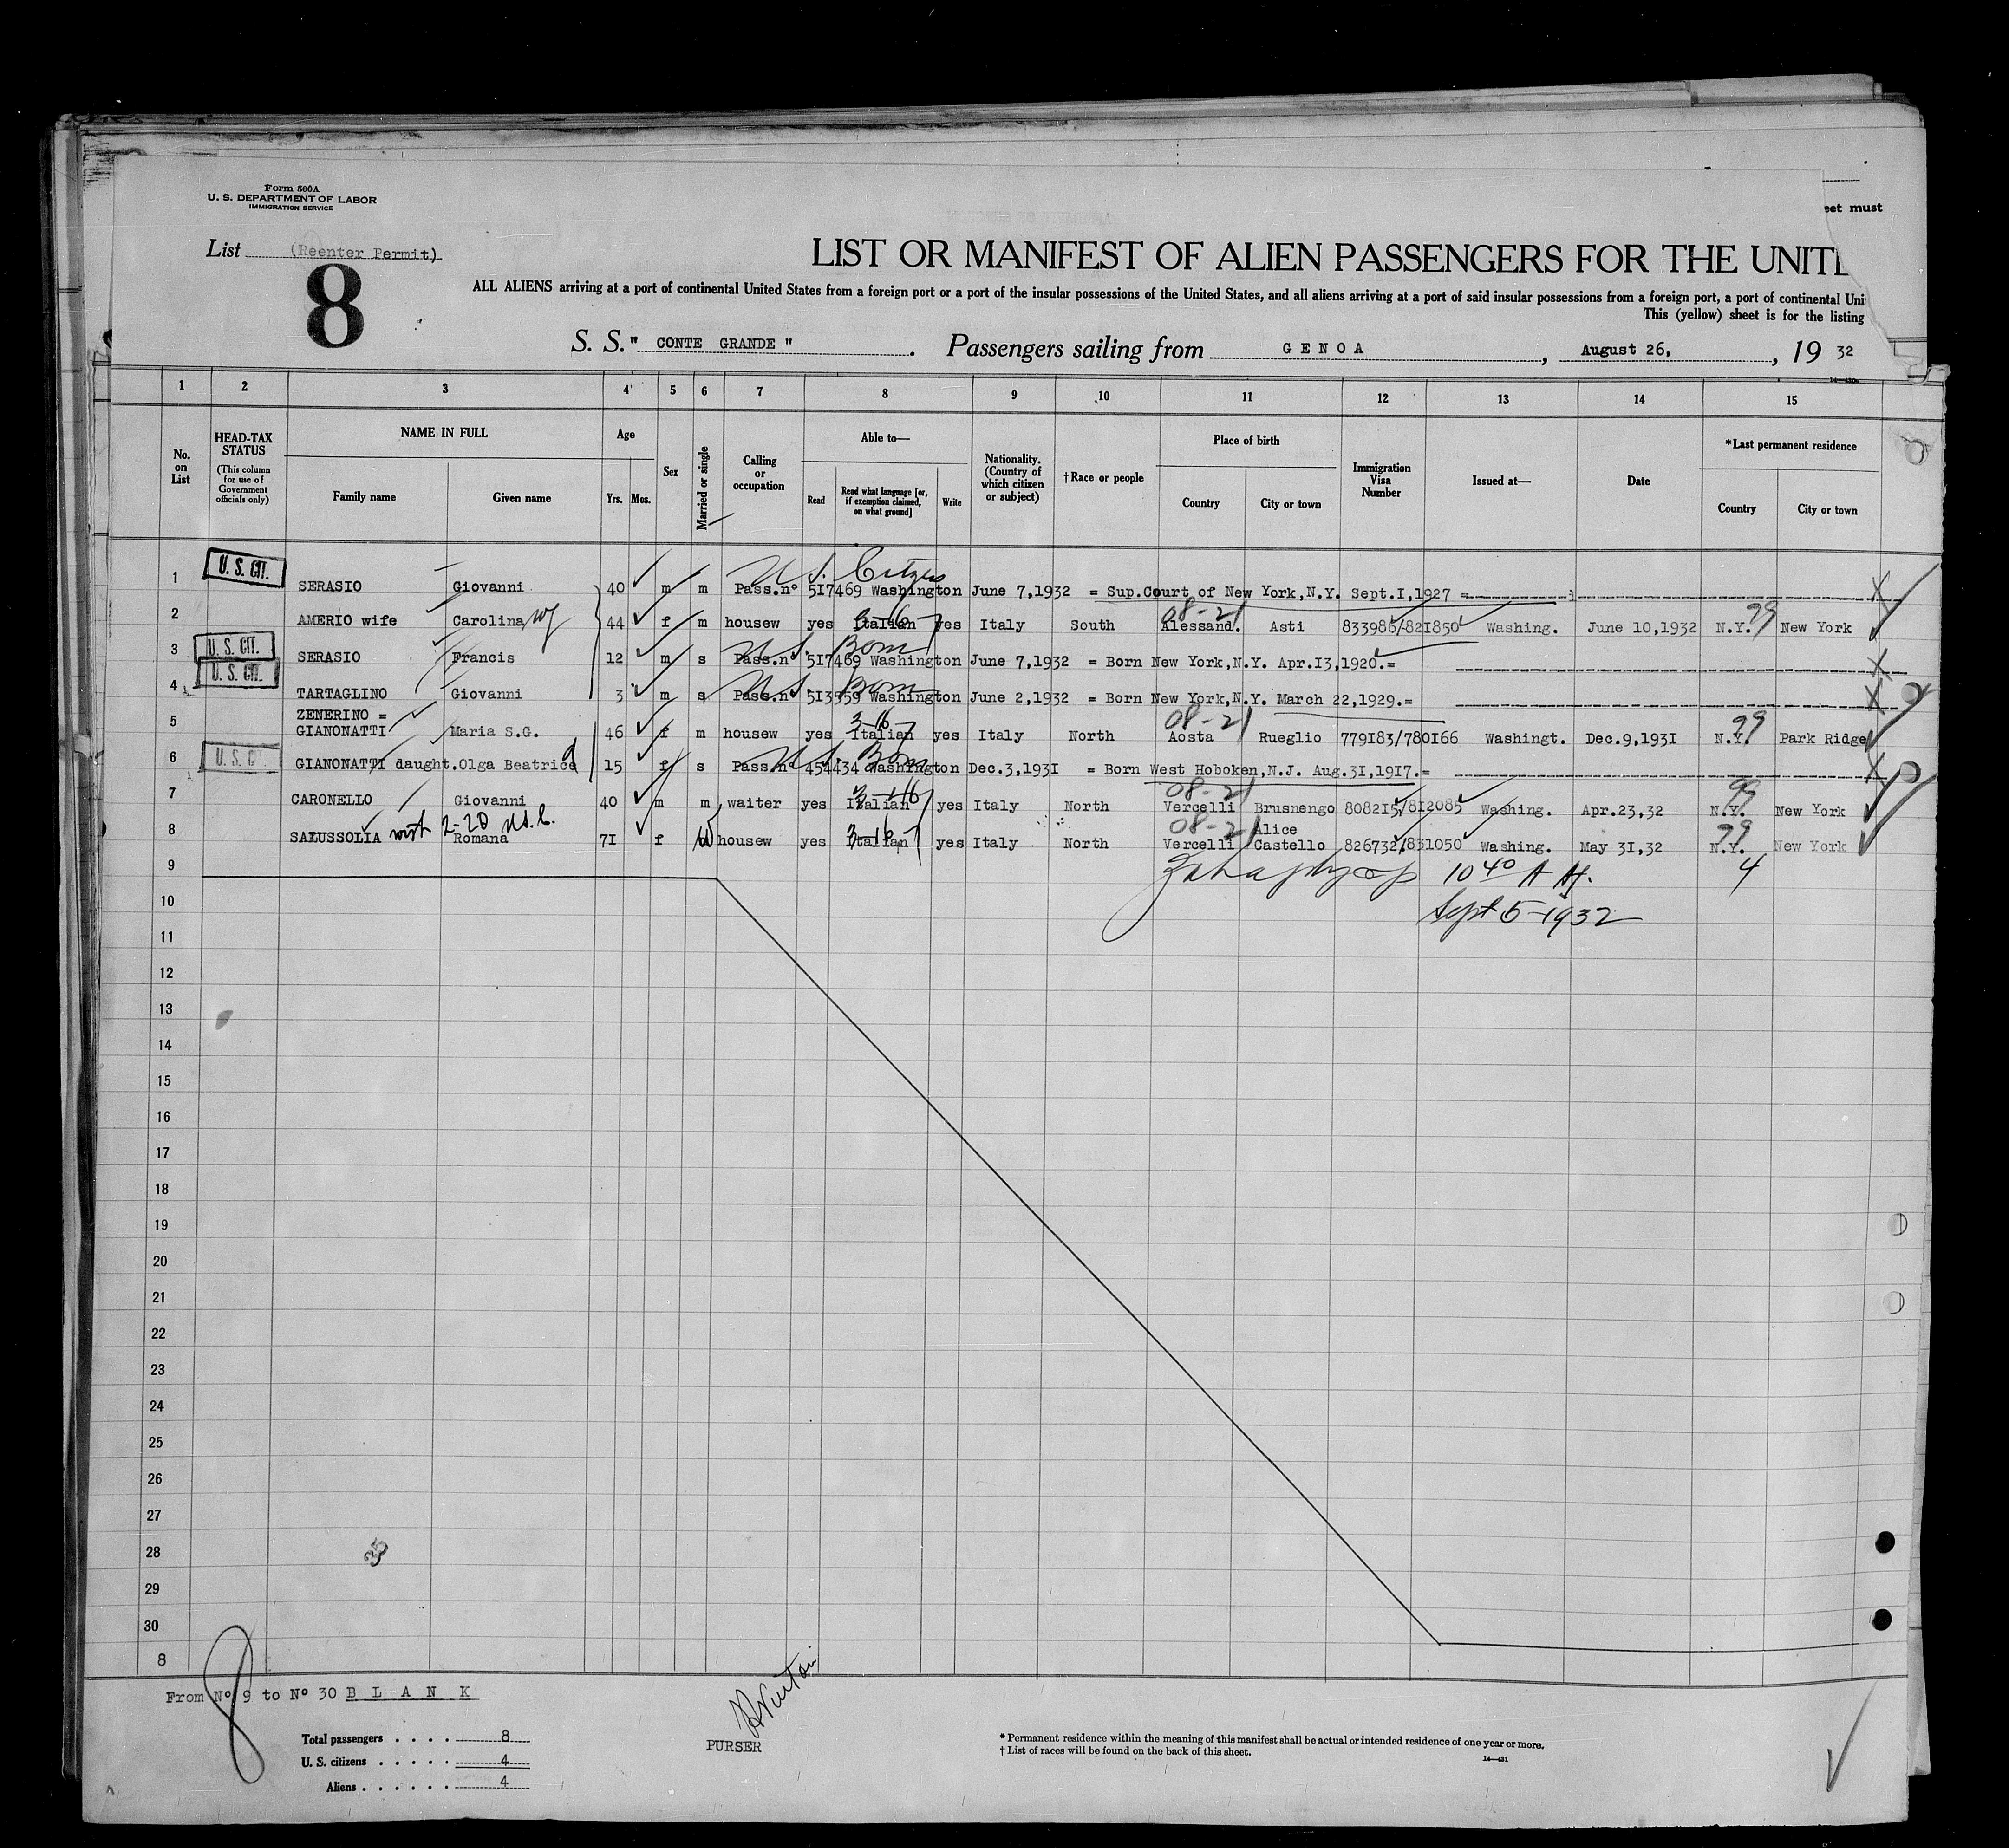 eet must
Form 500A
U. S. DEPARTMENT OF LABOR
IMMIGRATION SERVICE
List (Reenter Permit)
8
LIST OR MANIFEST OF ALIEN PASSENGERS FOR THE UNITE
ALL ALIENS arriving at a port of continental United States from a foreign port or a port of the insular possessions of the United States, and all aliens arriving at a port of said insular possessions from a foreign port, a port of continental Uni
This (yellow) sheet is for the listing
S. S. " CONTE GRANDE " . Passengers sailing from GENOA , August 26, , 19 32
1 2 3 4 5 6 7 8 9 10 11 12 13 14 15
No. on List
HEAD-TAX STATUS (This column for use of Government officials only)
NAME IN FULL
Family name Given name
Age
Yrs. Mos.
Sex
Married or single
Calling or occupation
Able to—
Read Read what language [or, if exemption claimed, on what ground] Write
Nationality. (Country of which citizen or subject)
†Race or people
Place of birth
Country City or town
Immigration Visa Number
Issued at—
Date
*Last permanent residence
Country City or town
U. S. CIT. U.S. Citizen
1 SERASIO Giovanni 40 m m Pass.n° 517469 Washington June 7,1932 = Sup.Court of New York,N.Y. Sept.1,1927 =
3-16 08-21 99
2 AMERIO wife Carolina wf 44 f m housew yes Italian yes Italy South Alessand. Asti 833986/821850 Washing. June 10,1932 N.Y. New York
U. S. CIT. U.S. Born
3 SERASIO Francis 12 m s Pass.n° 517469 Washington June 7,1932 = Born New York,N.Y. Apr.13,1920.=
U. S. CIT. U.S. Born
4 TARTAGLINO Giovanni 3 m s Pass.n° 513559 Washington June 2,1932 = Born New York,N.Y. March 22,1929.=
ZENERINO = 3-16 08-21 99
5 GIANONATTI Maria S.G. 46 f m housew yes Italian yes Italy North Aosta Rueglio 779183/780166 Washingt. Dec.9,1931 N.Y. Park Ridge
U. S. C U.S. Born
6 GIANONATTI daught.Olga Beatrice d 15 f s Pass.n° 454434 Washington Dec.3,1931 = Born West Hoboken,N.J. Aug.31,1917.=
3-16 08-21 99
7 CARONELLO Giovanni 40 m m waiter yes Italian yes Italy North Vercelli Brusnengo 808215/812085 Washing. Apr.23,32 N.Y. New York
2-20 3-16 08-21 Alice 99
8 SALUSSOLIA Romana 71 f W housew yes Italian yes Italy North Vercelli Castello 826732/831050 Washing. May 31,32 N.Y. New York
9 10 40 A M. 4
10 Sept 5-1932
11
12
13
14
15
16
17
18
19
20
21
22
23
24
25
26
27
28 35
29
30
8
From N° 9 to N° 30 BLANK
8
Total passengers . . . . 8
U. S. citizens . . . . . 4
Aliens . . . . . . 4
PURSER
* Permanent residence within the meaning of this manifest shall be actual or intended residence of one year or more.
† List of races will be found on the back of this sheet.